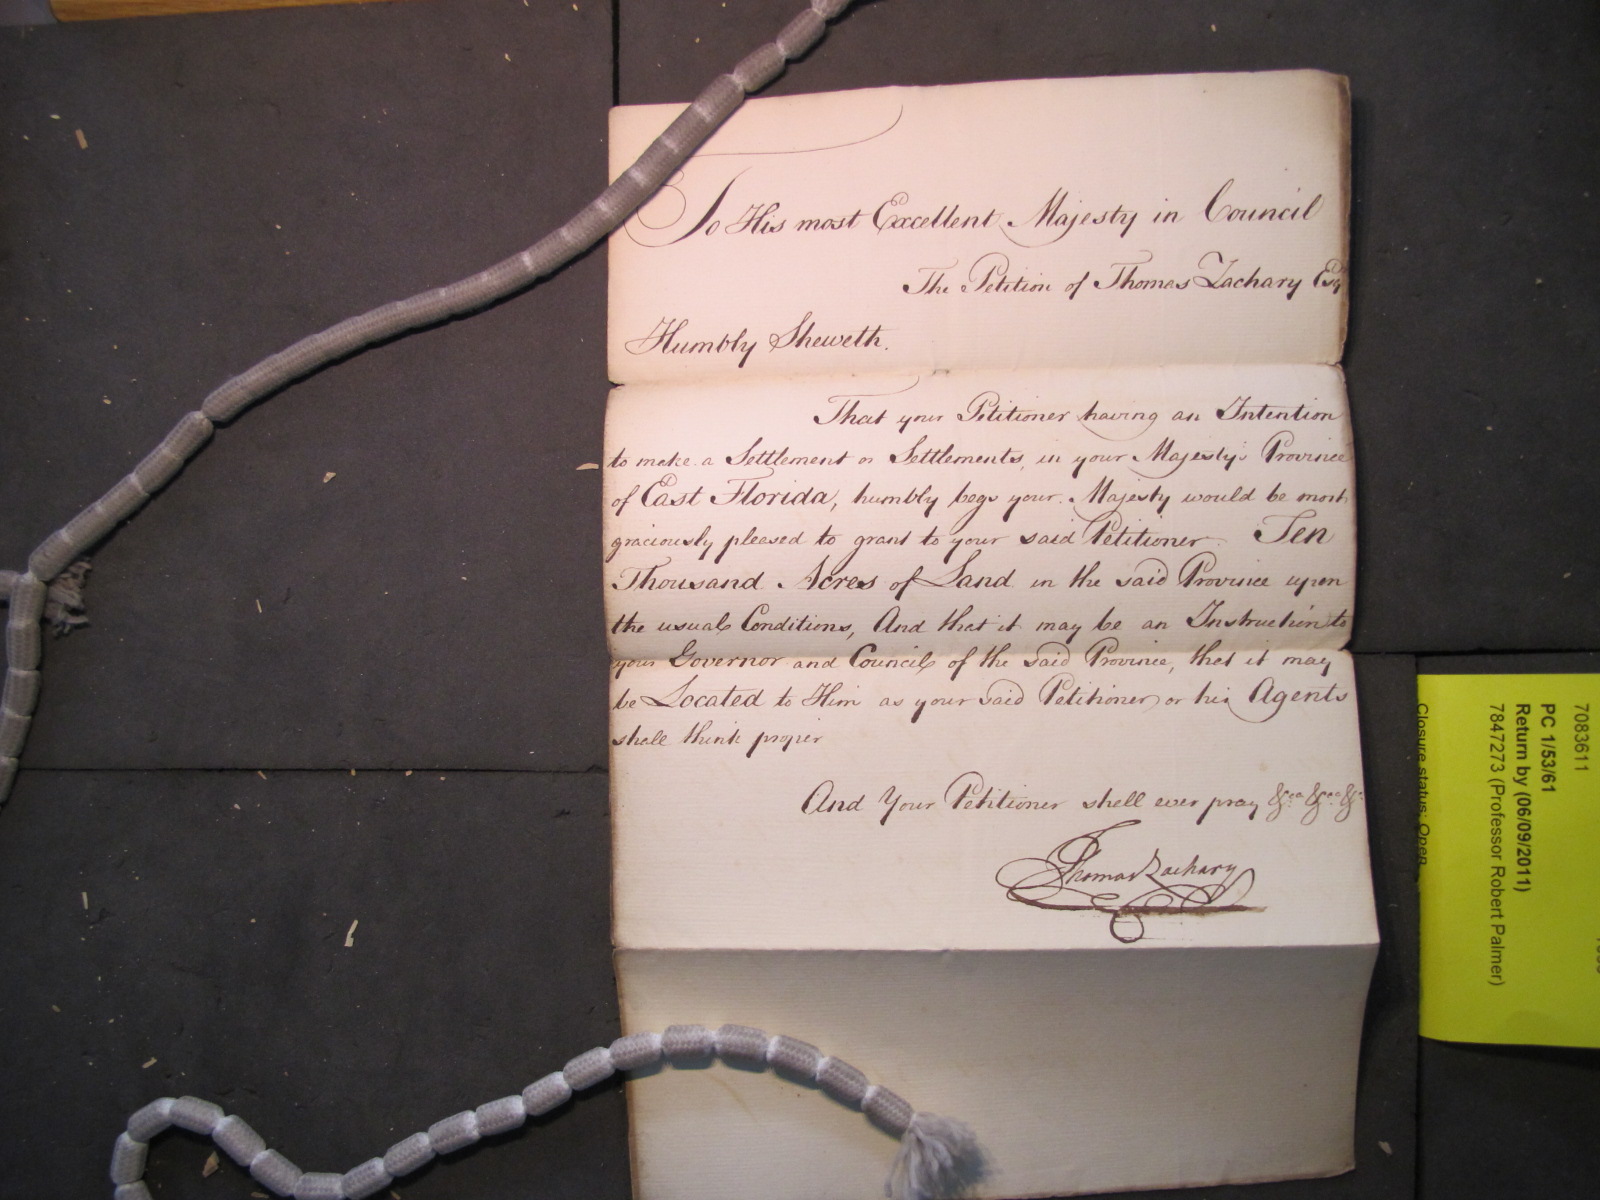 To His most Excellent Majesty in Council
The Petition of Thomas Zachary Esqr
Humbly Sheweth.
That your Petitioner having an Intention
to make a Settlement or Settlements, in your Majesty's Province
of East Florida, humbly begs your Majesty would be most
graciously pleased to grant to your said Petitioner Ten
Thousand Acres of Land in the said Province upon
the usual Conditions, And that it may be an Instruction to
your Governor and Council of the said Province, that it may
be Located to Him as your said Petitioner or his Agents
shall think proper
And Your Petitioner shall ever pray &ca &ca &ca
Thomas Zachary
7083611
PC 1/53/61
Return by (06/09/2011)
7847273 (Professor Robert Palmer)
Closure status: Open